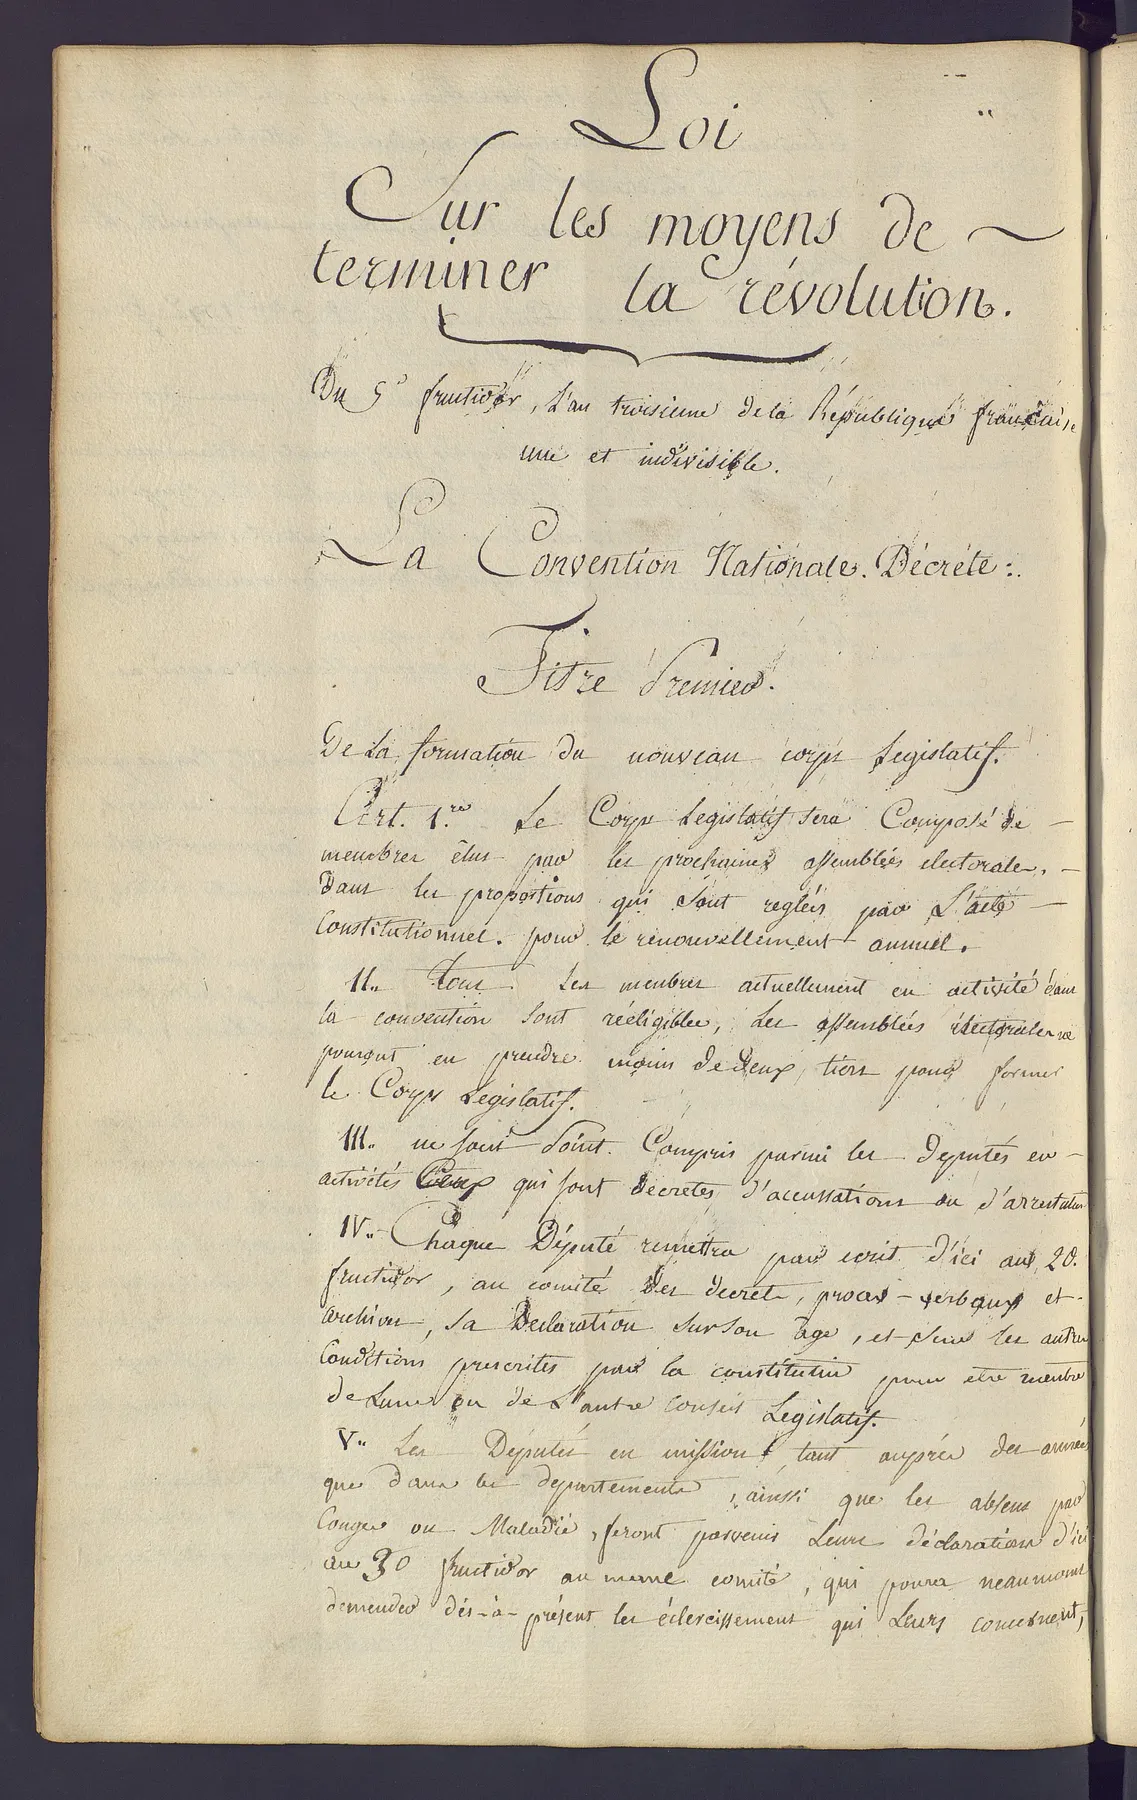 Loi
Sur les moyens de
terminer la révolution.
Du 5 fructidor, L'an troisieme de la République francaise
une et indivisible.
La Convention Nationale. Décréte :
Titre Premier.
De La formation du nouveau corps Legislatif.
Art. 1.er Le Corps Legislatif sera Composé de
membres élus par les prochaines assemblées electorales,
dans les proportions qui sont reglées par L'acte
Constitutionnel. pour le renouvellement annuel.
II.. Tous Les membres actuellement en activité dans
la convention sont rééligibles, Les assemblées électorales ne
pouront en prendre moins de deux tiers pour former
le Corps Legislatif.
III.. ne sont Point Compris parmi les députés en
activités Ceux qui sont décretés d'accussations ou d'arrestation
IV.. Chaque Député remettra par ecrit d'ici au 20.
fructidor, au comité des decrets, procès-verbaux et
archives, sa Declaration sur son âge, et sur les autres
Conditions prescrites par la constitution pour etre membre
de Lune ou de L'autre conseil Legislatif.
V.. Les Députés en mission tant auprés des armées
que dans les departements, ainsi que les absens par
Conges ou Maladie, feront parvenir Leurs déclarations d'ici
au 30 fructidor au meme comité, qui poura neaumoins
demender dés-à-présent les éclercissement qui Leurs concernent,